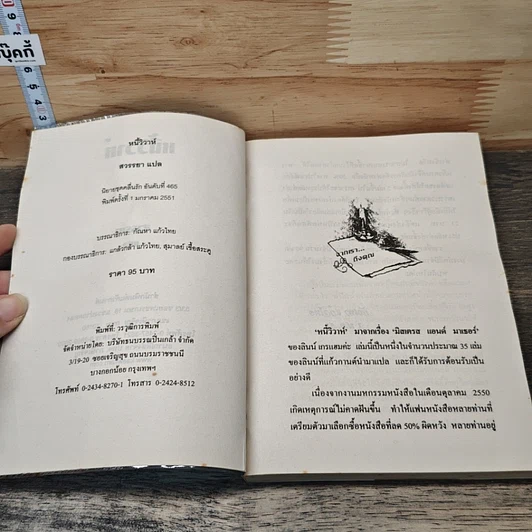 บุ๊คกี้
หนี้วิวาห์
สวรรยา แปล
นิยายชุดคลื่นรัก อันดับที่ 465
พิมพ์ครั้งที่ 1 มกราคม 2551
บรรณาธิการ: กัณหา แก้วไทย
กองบรรณาธิการ: แกล้งกล้า แก้วไทย, สุมาลย์ เชื้อสระคู
ราคา 95 บาท
พิมพ์ที่: วรวุฒิการพิมพ์
จัดจำหน่ายโดย: บริษัทธนบรรณปิ่นเกล้า จำกัด
3/19-20 ซอยเจริญสุข ถนนบรมราชชนนี
บางกอกน้อย กรุงเทพฯ
โทรศัพท์ 0-2434-8270-1 โทรสาร 0-2424-8512
จากเรา...
ถึงคุณ
'หนี้วิวาห์' มาจากเรื่อง 'มิสเตรส แอนด์ มาเธอร์'
ของลินน์ เกรแฮมค่ะ เล่มนี้เป็นหนึ่งในจำนวนประมาณ 35 เล่ม
ของลินน์ที่แก้วกานต์นำมาแปล และก็ได้รับการต้อนรับเป็น
อย่างดี
เนื่องจากงานมหกรรมหนังสือในเดือนตุลาคม 2550
เกิดเหตุการณ์ไม่คาดฝันขึ้น ทำให้แฟนหนังสือหลายท่านที่
เตรียมตัวมาเลือกซื้อหนังสือที่ลด 50% ผิดหวัง หลายท่านอยู่